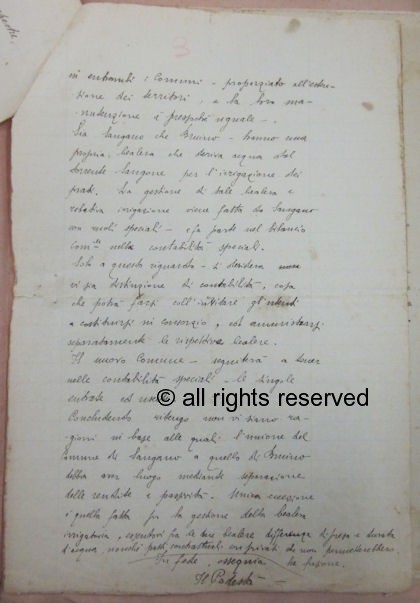 3
in entrambi i Comuni - proporziato all'esten-
sione dei territori, e la loro ma-
nutenzione è pressoché uguale -.
Sia Sangano che Bruino - hanno una
propria bealera che deriva acqua dal
torrente Sangone per l'irrigazione dei
prati. La gestione di tale bealera e
relativa irrigazione viene fatta da Sangano
con ruoli speciali - e fa parte nel bilancio
com.le nella contabilità speciali.
Solo a questo riguardo - si desidera
vi sia distinzione di contabilità, cosa
che potrà farsi coll'invitare gli utenti
a costituirsi in consorzio, ed amministrarsi
separatamente le rispettive bealere.
Il nuovo Comune - seguiterà a tener
nelle contabilità speciali - le singole
entrate ed
© all rights reserved
Concludendo ritengo non vi siano ra-
gioni in base alle quali l'unione del
Comune di Sangano a quello di Bruino
debba aver luogo mediante separazione
delle rendite e passività. Unica eccezione
è quella fatta per la gestione della bealera
irrigatoria, essendovi fra le due bealere differenze di presa e durata
d'acqua, nonché patti contrattuali con privati che non permetterebbero
la fusione.
In fede, ossequia
Il Podestà